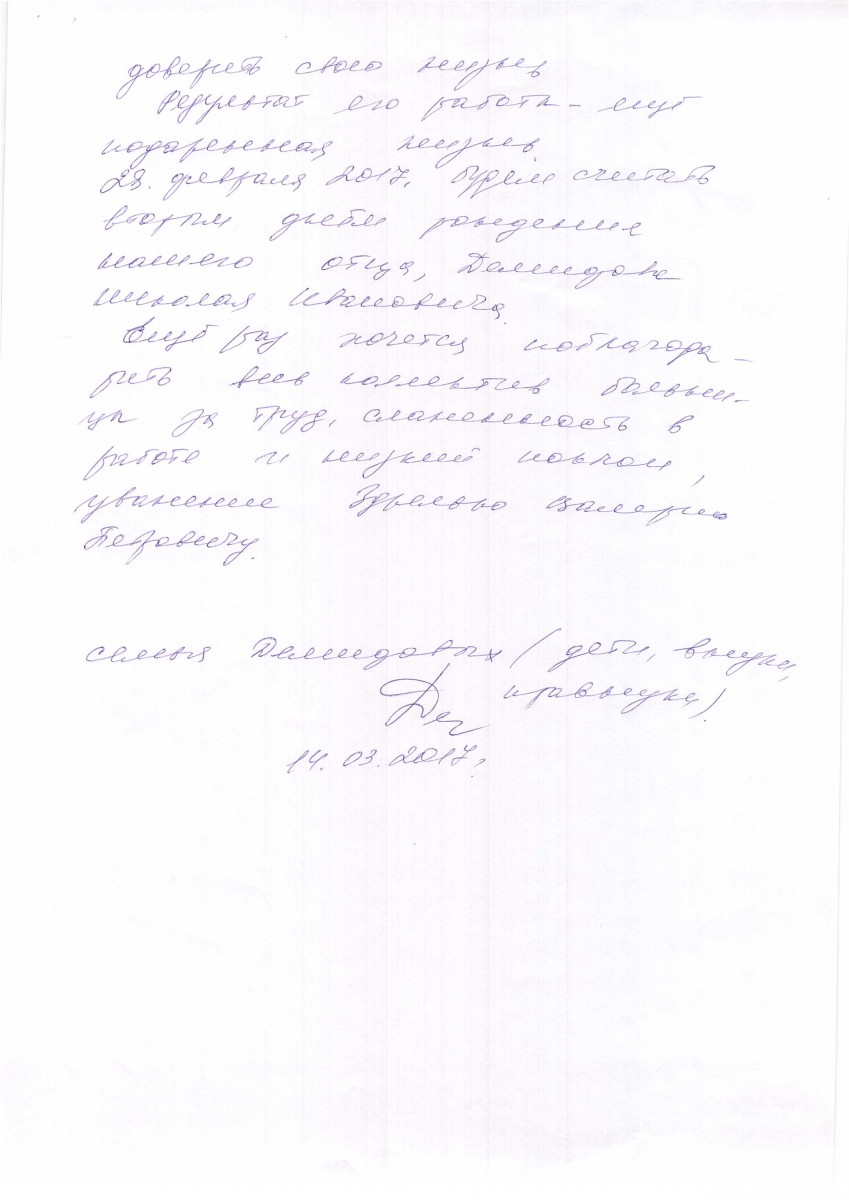 доверить свою жизнь
Результат его работы - ещё
подаренная жизнь
28. февраля 2017. будем считать
вторым днём рождения
нашего отца, Демидова
Николая Ивановича.
Ещё раз хочется поблагода-
рить весь коллектив больни-
цы за труд, слаженность в
работе и низкий поклон,
уважение Валерию
Петровичу.
семья Демидовых (дети, внуки,
правнуки).
14.03.2017.